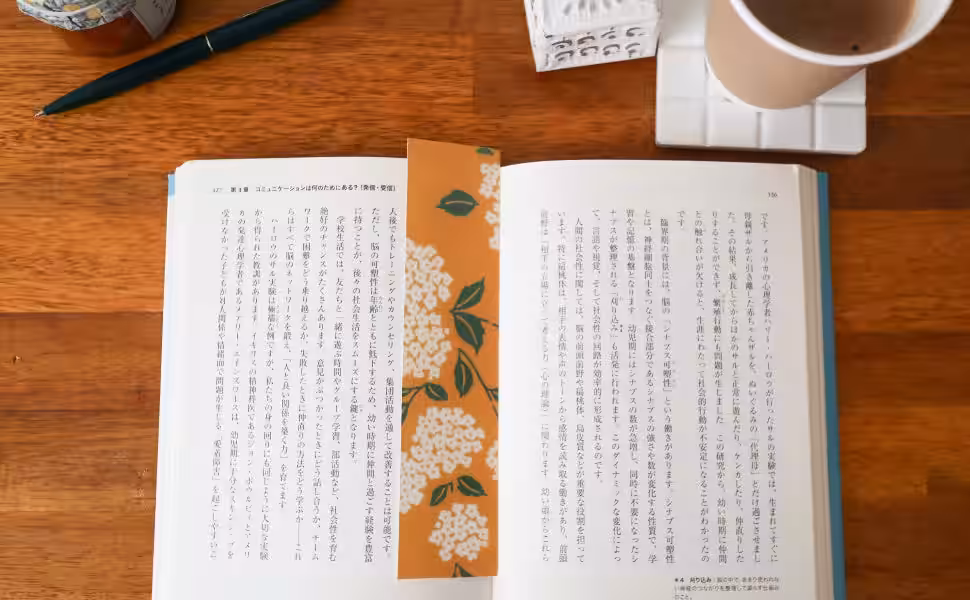 156
です。アメリカの心理学者ハリー・ハーロウが行ったサルの実験では、生まれてすぐに
母親ザルから引き離した赤ちゃんザルを、ぬいぐるみの「代理母」とだけ過ごさせまし
た。その結果、成長してからほかのサルと正常に遊んだり、ケンカしたり、仲直りした
りすることができず、繁殖行動にも問題が生じました。この研究から、幼い時期に仲間
との触れ合いが欠けると、生涯にわたって社会的行動が不安定になることがわかったの
です。
臨界期の背景には、脳の「シナプス可塑性」という働きがあります。シナプス可塑性
とは、神経細胞同士をつなぐ接合部分であるシナプスの強さや数が変化する性質で、学
習や記憶の基盤となります。幼児期にはシナプスの数が急増し、同時に不要になったシ
ナプスが整理される「刈り込み」も活発に行われます。このダイナミックな変化によっ
て、言語や視覚、そして社会性の回路が効率的に形成されるのです。
人間の社会性に関しては、脳の前頭前野や扁桃体、島皮質などが重要な役割を担って
います。特に扁桃体は、相手の表情や声のトーンから感情を読み取る働きがあり、前頭
前野は「相手の立場に立って考える力（心の理論）」に関わります。幼い頃からこれら
*4 刈り込み：脳の中で、あまり使われな
い神経のつながりを整理して減らす仕組み
のこと。
157 第3章 コミュニケーションは何のためにある？（発信・受信）
人後でもトレーニングやカウンセリング、集団活動を通して改善することは可能です。
ただし、脳の可塑性は年齢とともに低下するため、幼い時期に仲間と過ごす経験を豊富
に持つことが、後々の社会生活をスムーズにする鍵となります。
学校生活では、友だちと一緒に遊ぶ時間やグループ学習、部活動など、社会性を育む
絶好のチャンスがたくさんあります。意見がぶつかったときにどう話し合うか、チーム
ワークで困難をどう乗り越えるか、失敗したときに仲直りの方法をどう学ぶか――これ
らはすべて脳のネットワークを鍛え、「人と良い関係を築く力」を育てます。
ハーロウのサル実験は極端な例ですが、私たちの身の回りにも同じように大切な実験
から得られた教訓があります。イギリスの精神科医であるジョン・ボウルビィとアメリ
カの発達心理学者であるメアリー・エインズワースは、幼児期に十分なスキンシップを
受けなかった子どもが対人関係や情緒面で問題が生じる「愛着障害」を起こしやすいこ